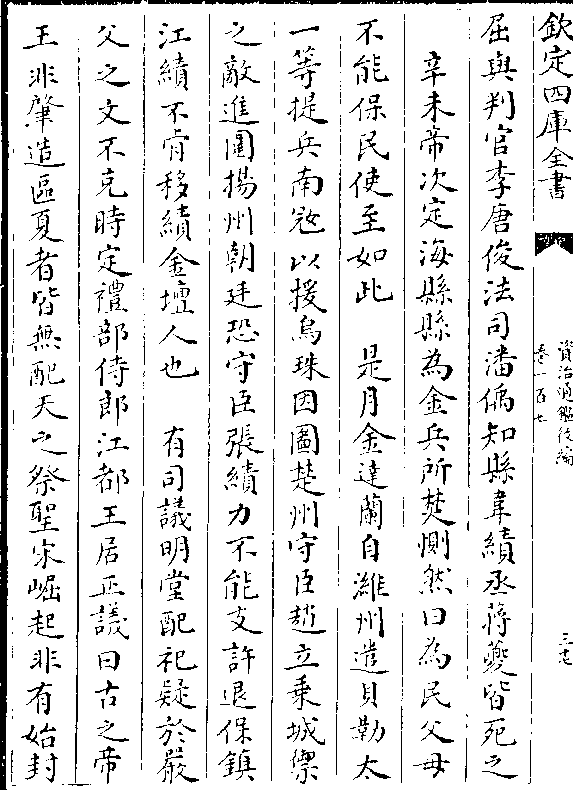 欽定四庫全書
資治通鑑後編
卷一百七
三七
屈與判官李唐俊法司潘偁知縣韋績丞蔣夔皆死之
辛未帝次定海縣縣為金兵所焚惻然曰為民父母
不能保民使至如此　是月金達蘭自濰州遣貝勒太
一等提兵南冦以援烏珠因圍楚州守臣趙立乗城禦
之敵進圍揚州朝廷恐守臣張績力不能支許退保鎮
江績不肯移績金壇人也　有司議明堂配祀疑於嚴
父之文不克時定禮部侍郎江都王居正議曰古之帝
王非肇造區夏者皆無配天之祭聖宋崛起非有始封